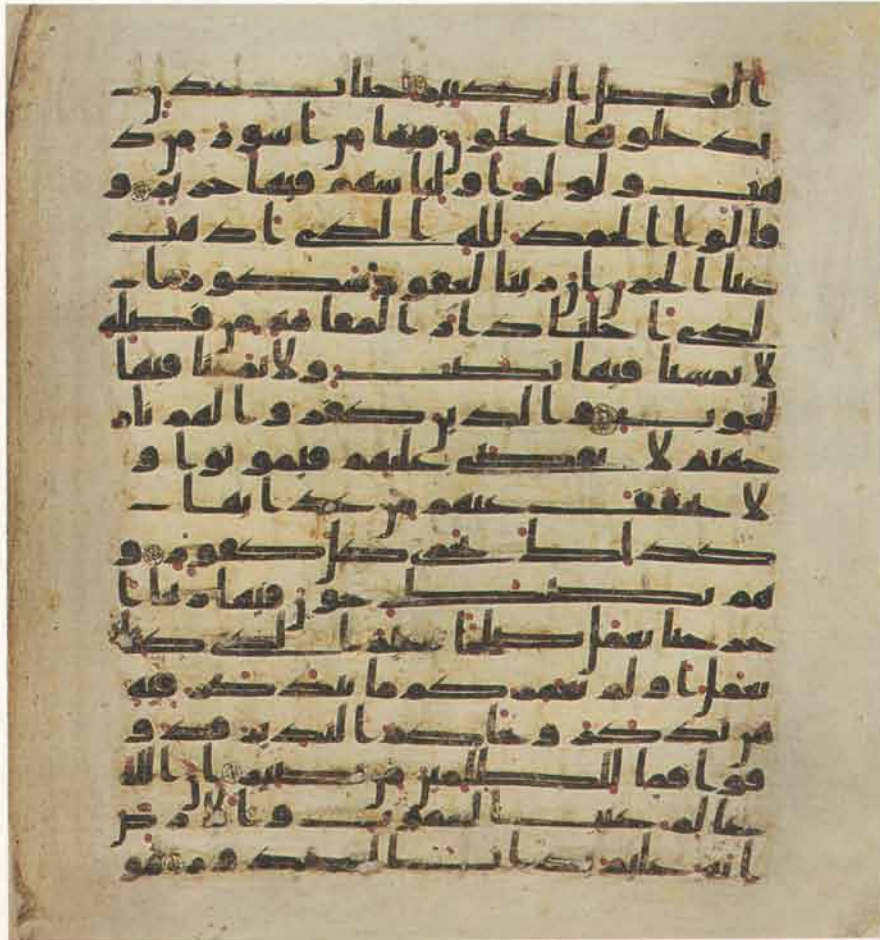 الفضل الكبير جنت عدن
يدخلونها يحلون فيها من اسور من ذ
هب ولولوا ولباسهم فيها حرير و
قالوا الحمد لله الذي اذهب
عنا الحزن ان ربنا لغفور شكور ا
لذي احلنا دار المقامة من فضله
لا يمسنا فيها نصب ولا يمسنا فيها
لغوب والذين كفروا لهم نار
جهنم لا يقضى عليهم فيموتوا و
لا يخفف عنهم من عذابها
كذلك نجزي كل كفور و
هم يصطرخون فيها ربنا ا
خرجنا نعمل صلحا غير الذي كنا
نعمل اولم نعمركم ما يتذكر فيه
من تذكر وجاكم النذير فذو
قوا فما للظلمين من نصير ان الله
علم غيب السموت والارض
انه عليم بذات الصدور هو